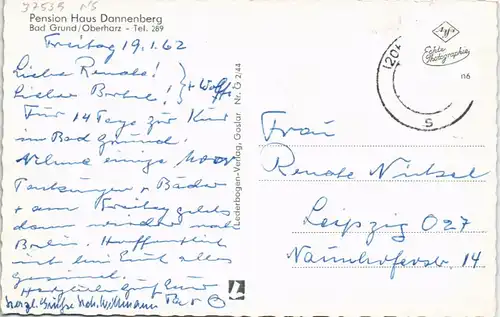 J7535 NS
Pension Haus Dannenberg
Bad Grund/Oberharz - Tel. 289
Freitag 19.1.62
Liebe Renate!
Lieber Bertel! + Wolfi
Für 14 Tage zur Kur
im Bad Grund.
Nehme einige Moor
Packungen + Bäder
+ am Freitag gehts
dann wieder nach
Berlin. Hoffentlich
ist bei Euch alles
gesund.
Herzlichst grüßt Euer
herzl. Grüße
Lederbogen-Verlag, Goslar Nr. O 2/44
Agfa
Echte
Photographie
n6
(20
S
Frau
Renate Nitzel
Leipzig O27
Naunhoferstr. 14